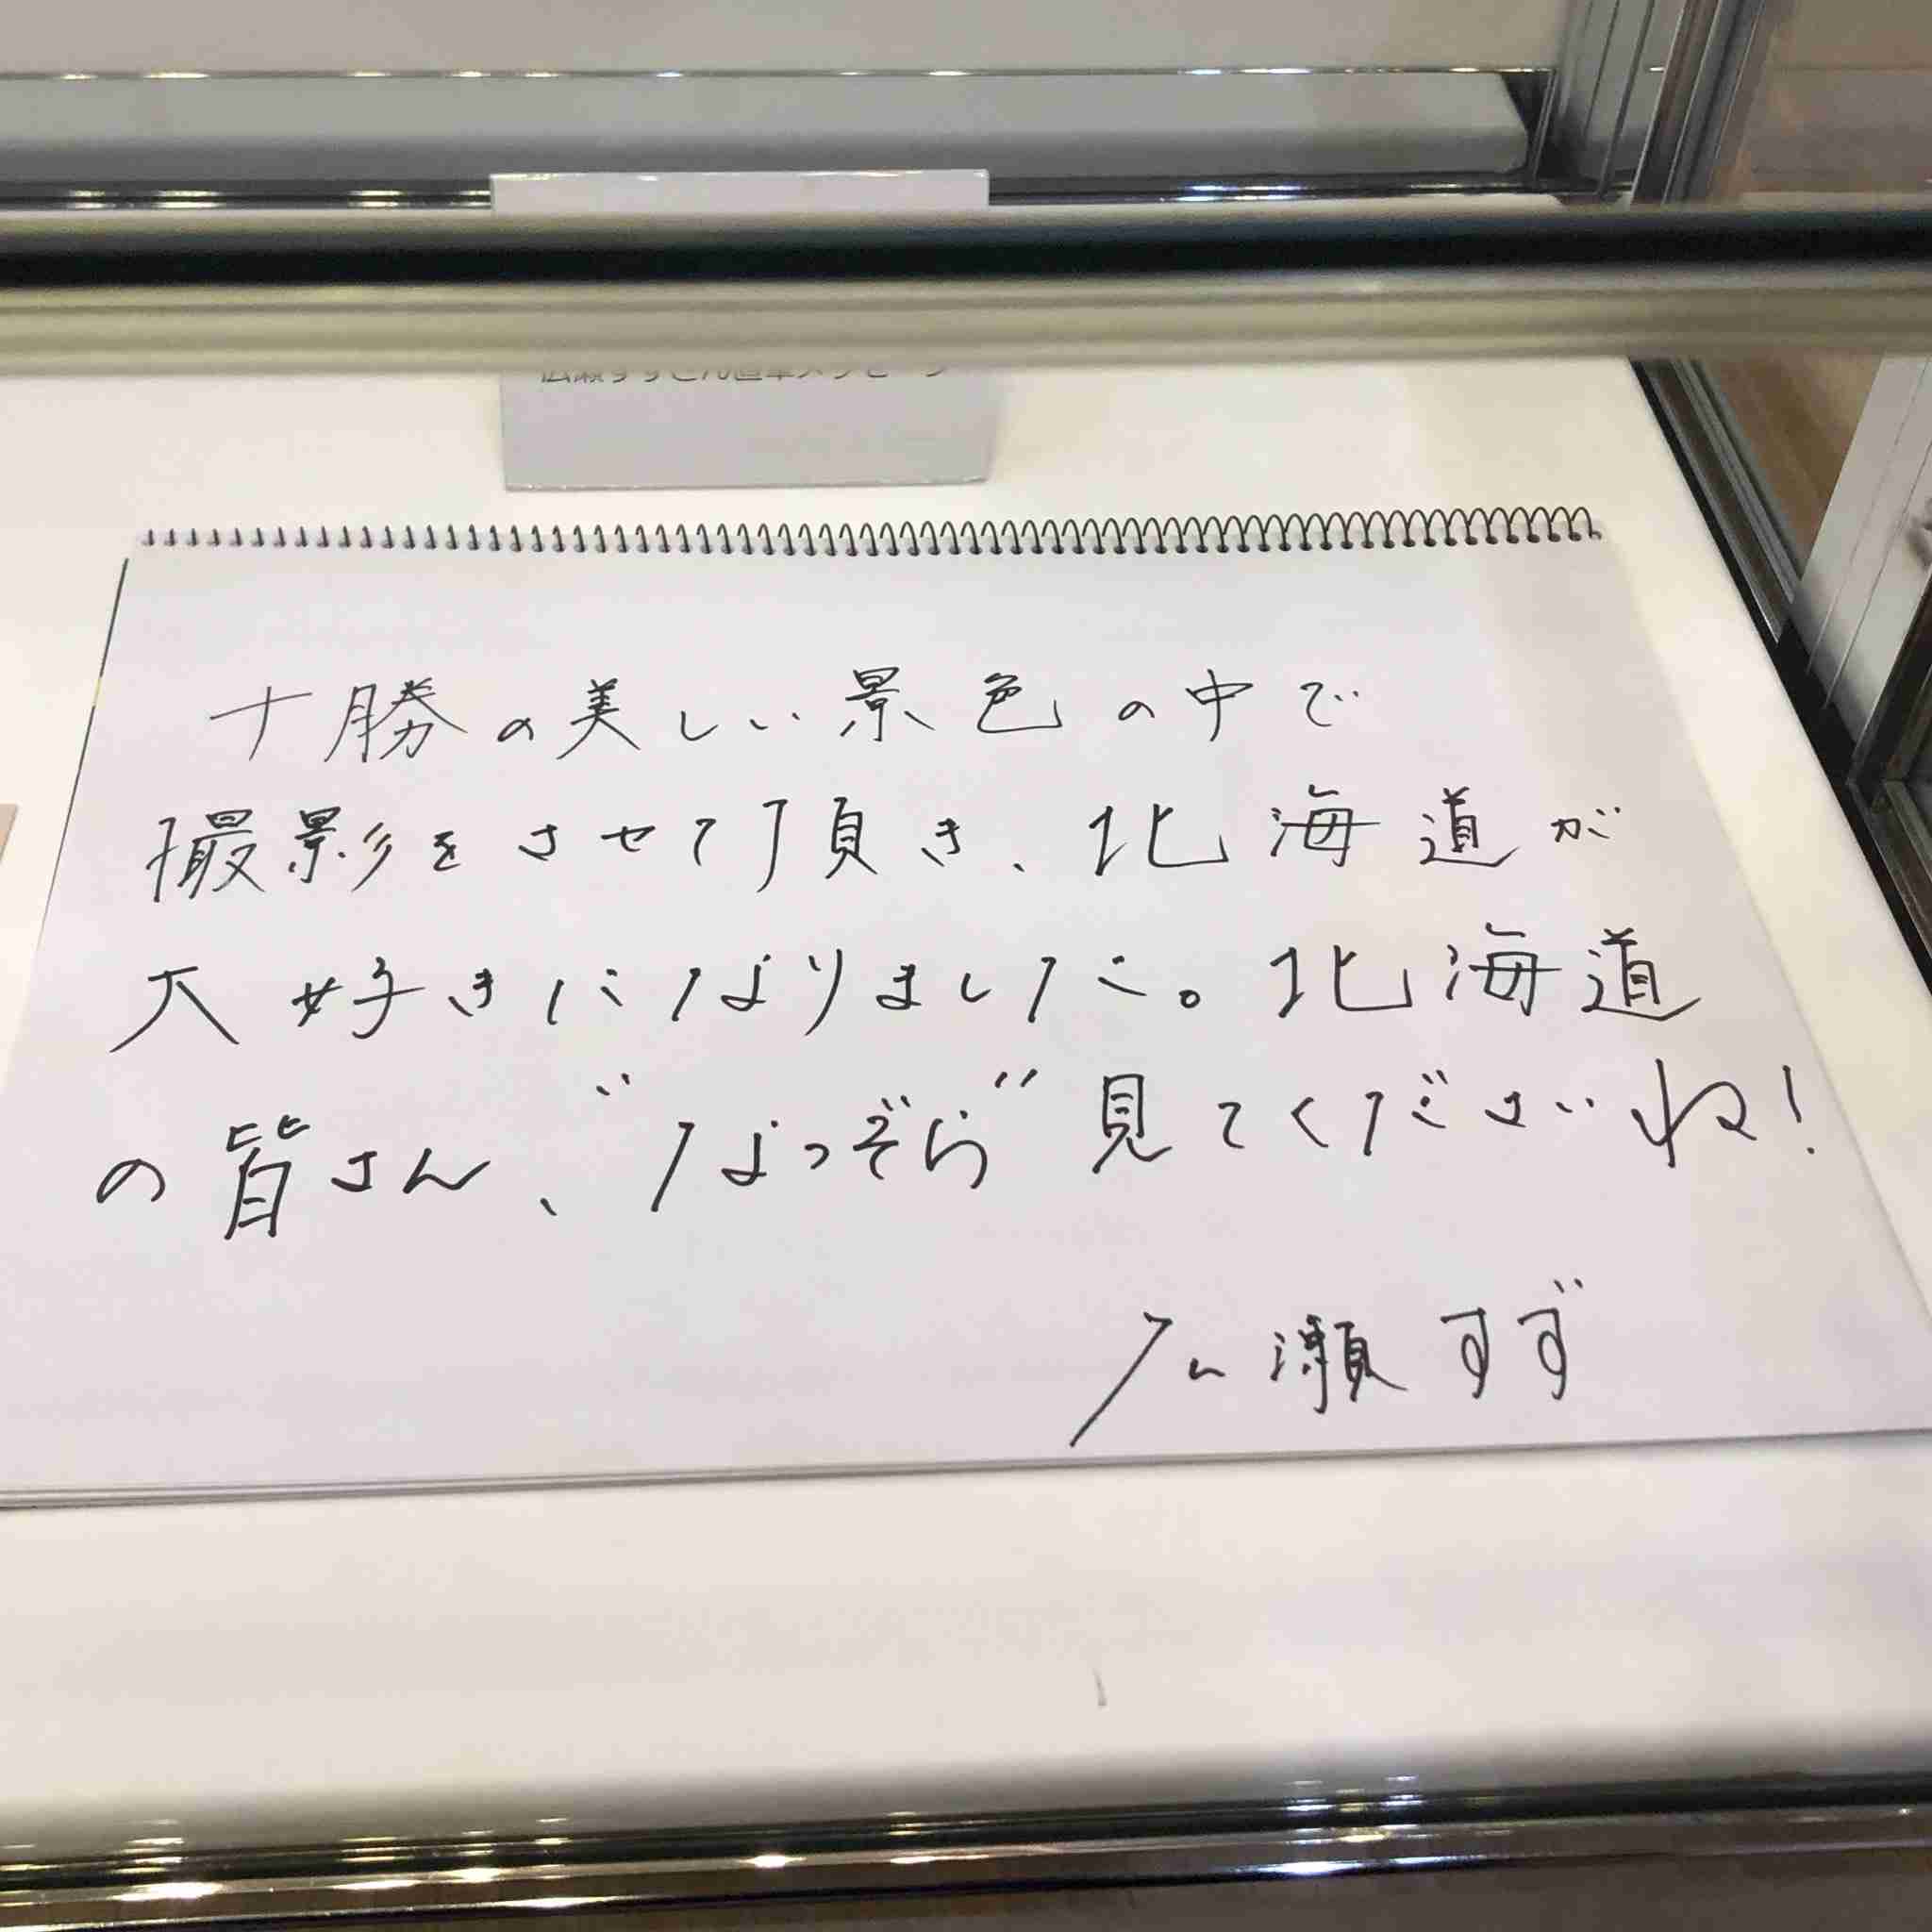 広瀬すずさん直筆メッセージ
十勝の美しい景色の中で
撮影をさせて頂き、北海道が
大好きになりました。北海道
の皆さん、"なつぞら"見てくださいね!
広瀬すず